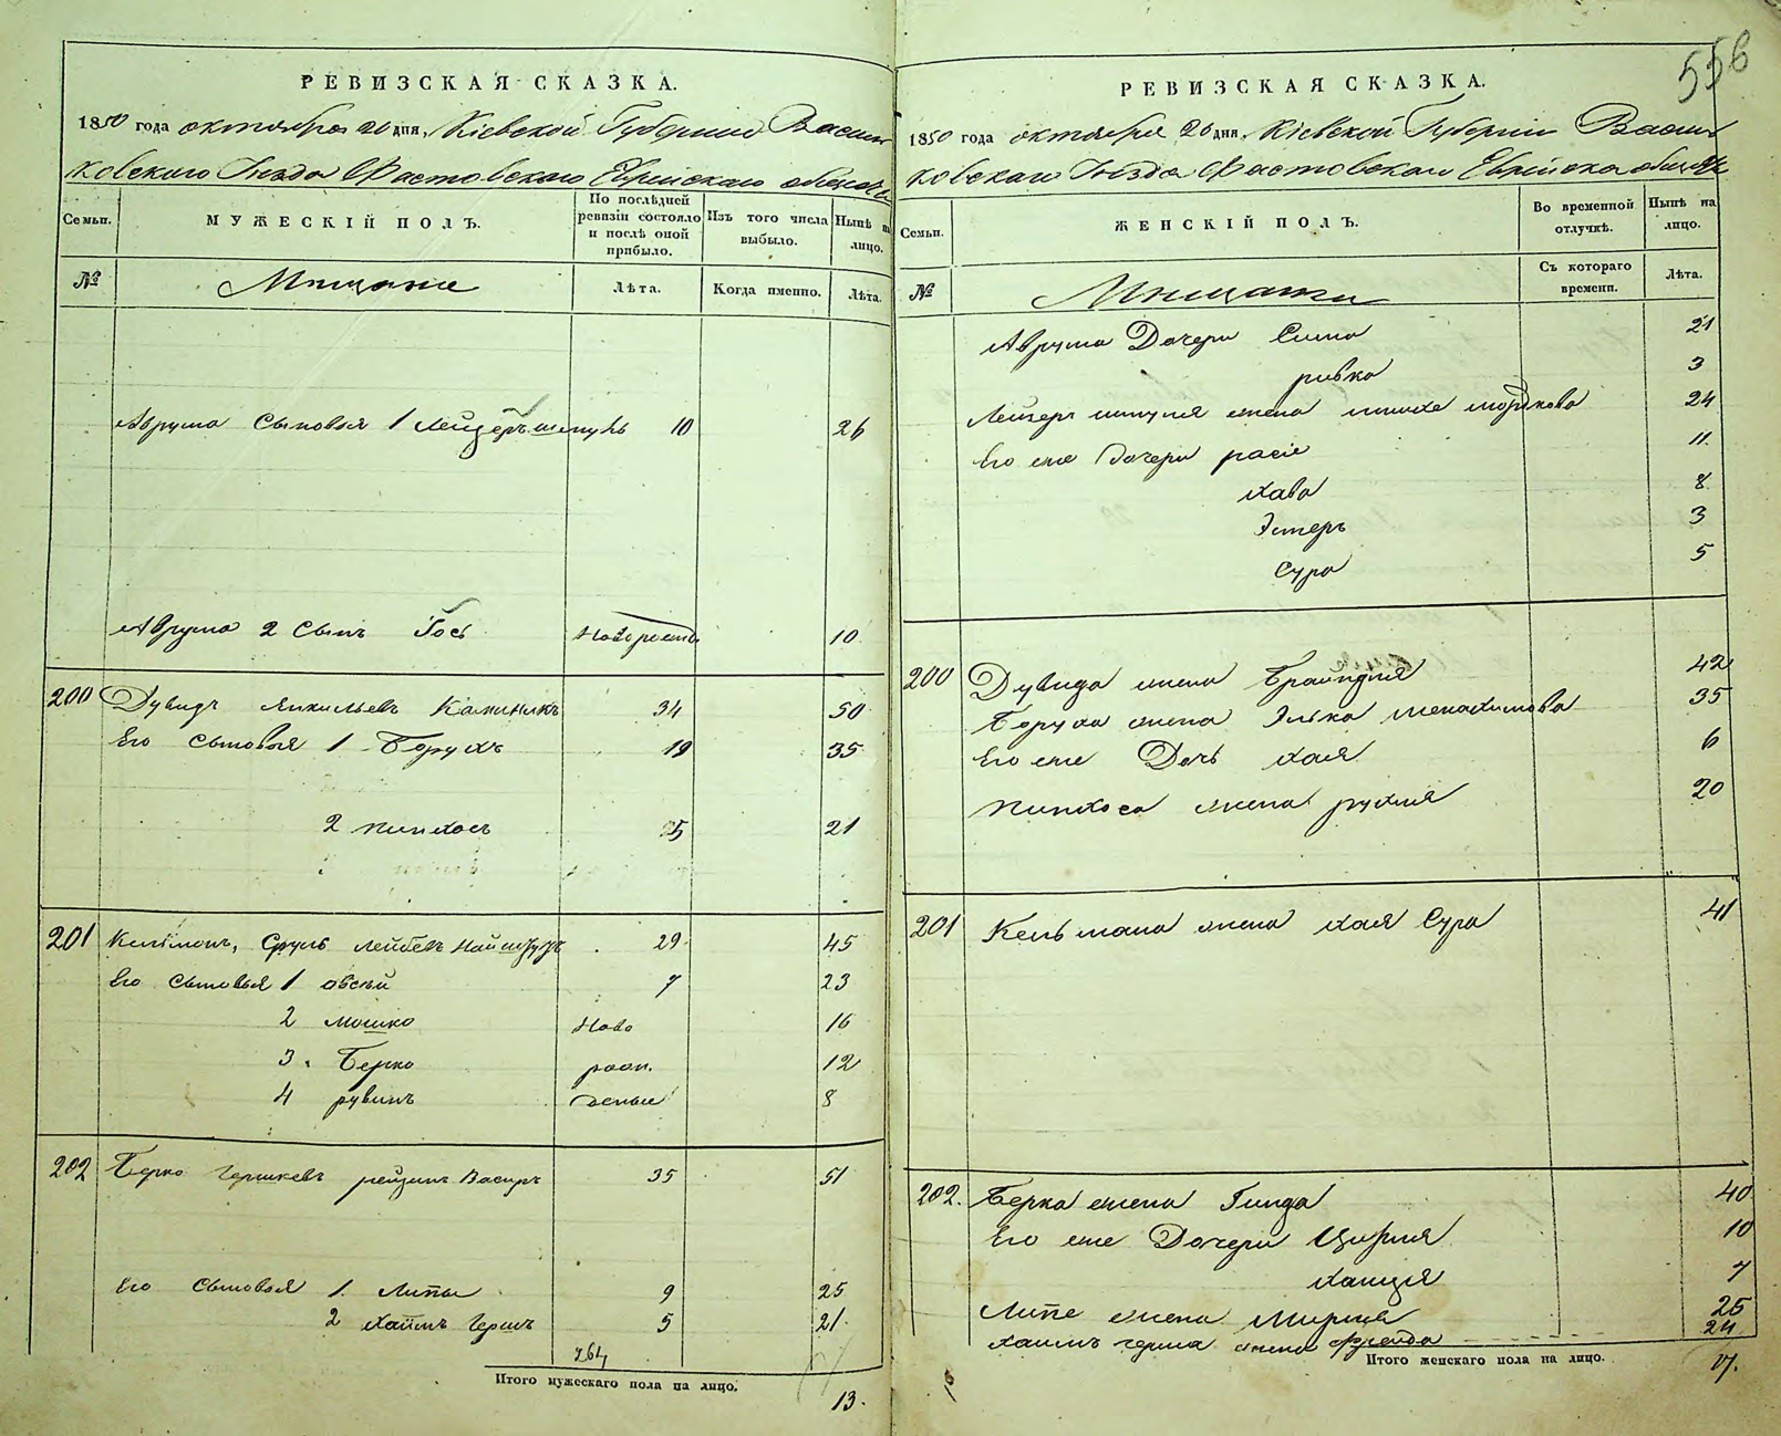 РЕВИЗСКАЯ СКАЗКА.
1850 года октября 20 дня, Кіевской Губерніи Василь
ковскаго Уѣзда Фастовскаго Еврейскаго общества
Семьи.
МУЖЕСКІЙ ПОЛЪ.
По послѣдней ревизіи состояло и послѣ оной прибыло.
Изъ того числа выбыло.
Нынѣ на лицо.
№
Мещане
Лѣта.
Когда именно.
Лѣта.
Аврума Сыновья 1 Лейзеръ 10 26
Аврума 2 Сынъ Іось Новорожд 10
200 Дувидъ Каминикъ 34 50
Его Сыновья 1 Борухъ 19 35
2 Пинхосъ 5 21
201 Кельмонъ, Сруль Лейбовъ 29 45
Его Сыновья 1 Овсей 7 23
2 Мошко Ново 16
3. Берко рож. 12
4 Рувинъ деные 8
202 Берко Гершковъ 35 51
Его Сыновья 1. Липы 9 25
2 Хаимъ Герш 5 21.
Итого мужескаго пола на лицо.
13.
556
РЕВИЗСКАЯ СКАЗКА.
1850 года октября 20 дня, Кіевской Губерніи Василь
ковскаго Уѣзда Фастовскаго Еврейска общества
Семьи.
ЖЕНСКІЙ ПОЛЪ.
Во временной отлучкѣ.
Нынѣ на лицо.
№
Мещанки
Съ котораго времени.
Лѣта.
Аврума Дочери Сима 21
ривка 3
Лейзера жена мордкова 24
Его же Дочери расіе 11.
хава 8
Эстеръ 3
Сура 5
200 Дувида жена Браиндля 42
Боруха жена Элька Менахимова 35
Его же Дочь хая 6
Пинхоса жена рухля 20
201 Кельмана жена хая Сура 41
202. Берка жена Гинда 40
Его же Дочери Цирля 10
7
Липе жена Мирля 25
хаимъ герша жена Фрейда 24
Итого женскаго пола на лицо.
17.